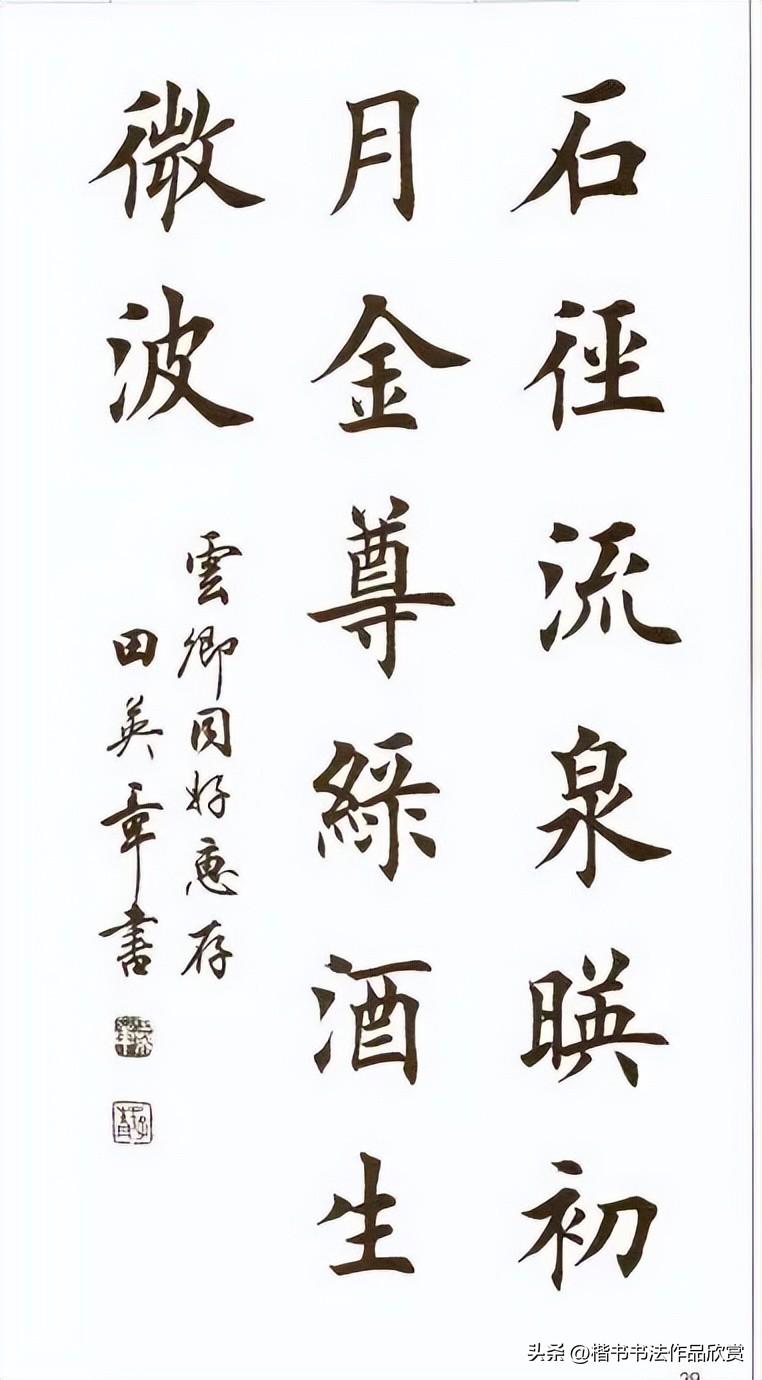 石徑流泉暎初
月金尊綠酒生
微波
雲卿同好惠存
田英章書
头条 @楷书书法作品欣赏